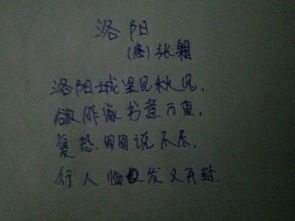 洛阳
(唐)张籍
洛阳城里见秋风,
欲作家书意万重,
复恐匆匆说不尽,
行人临发又开封.